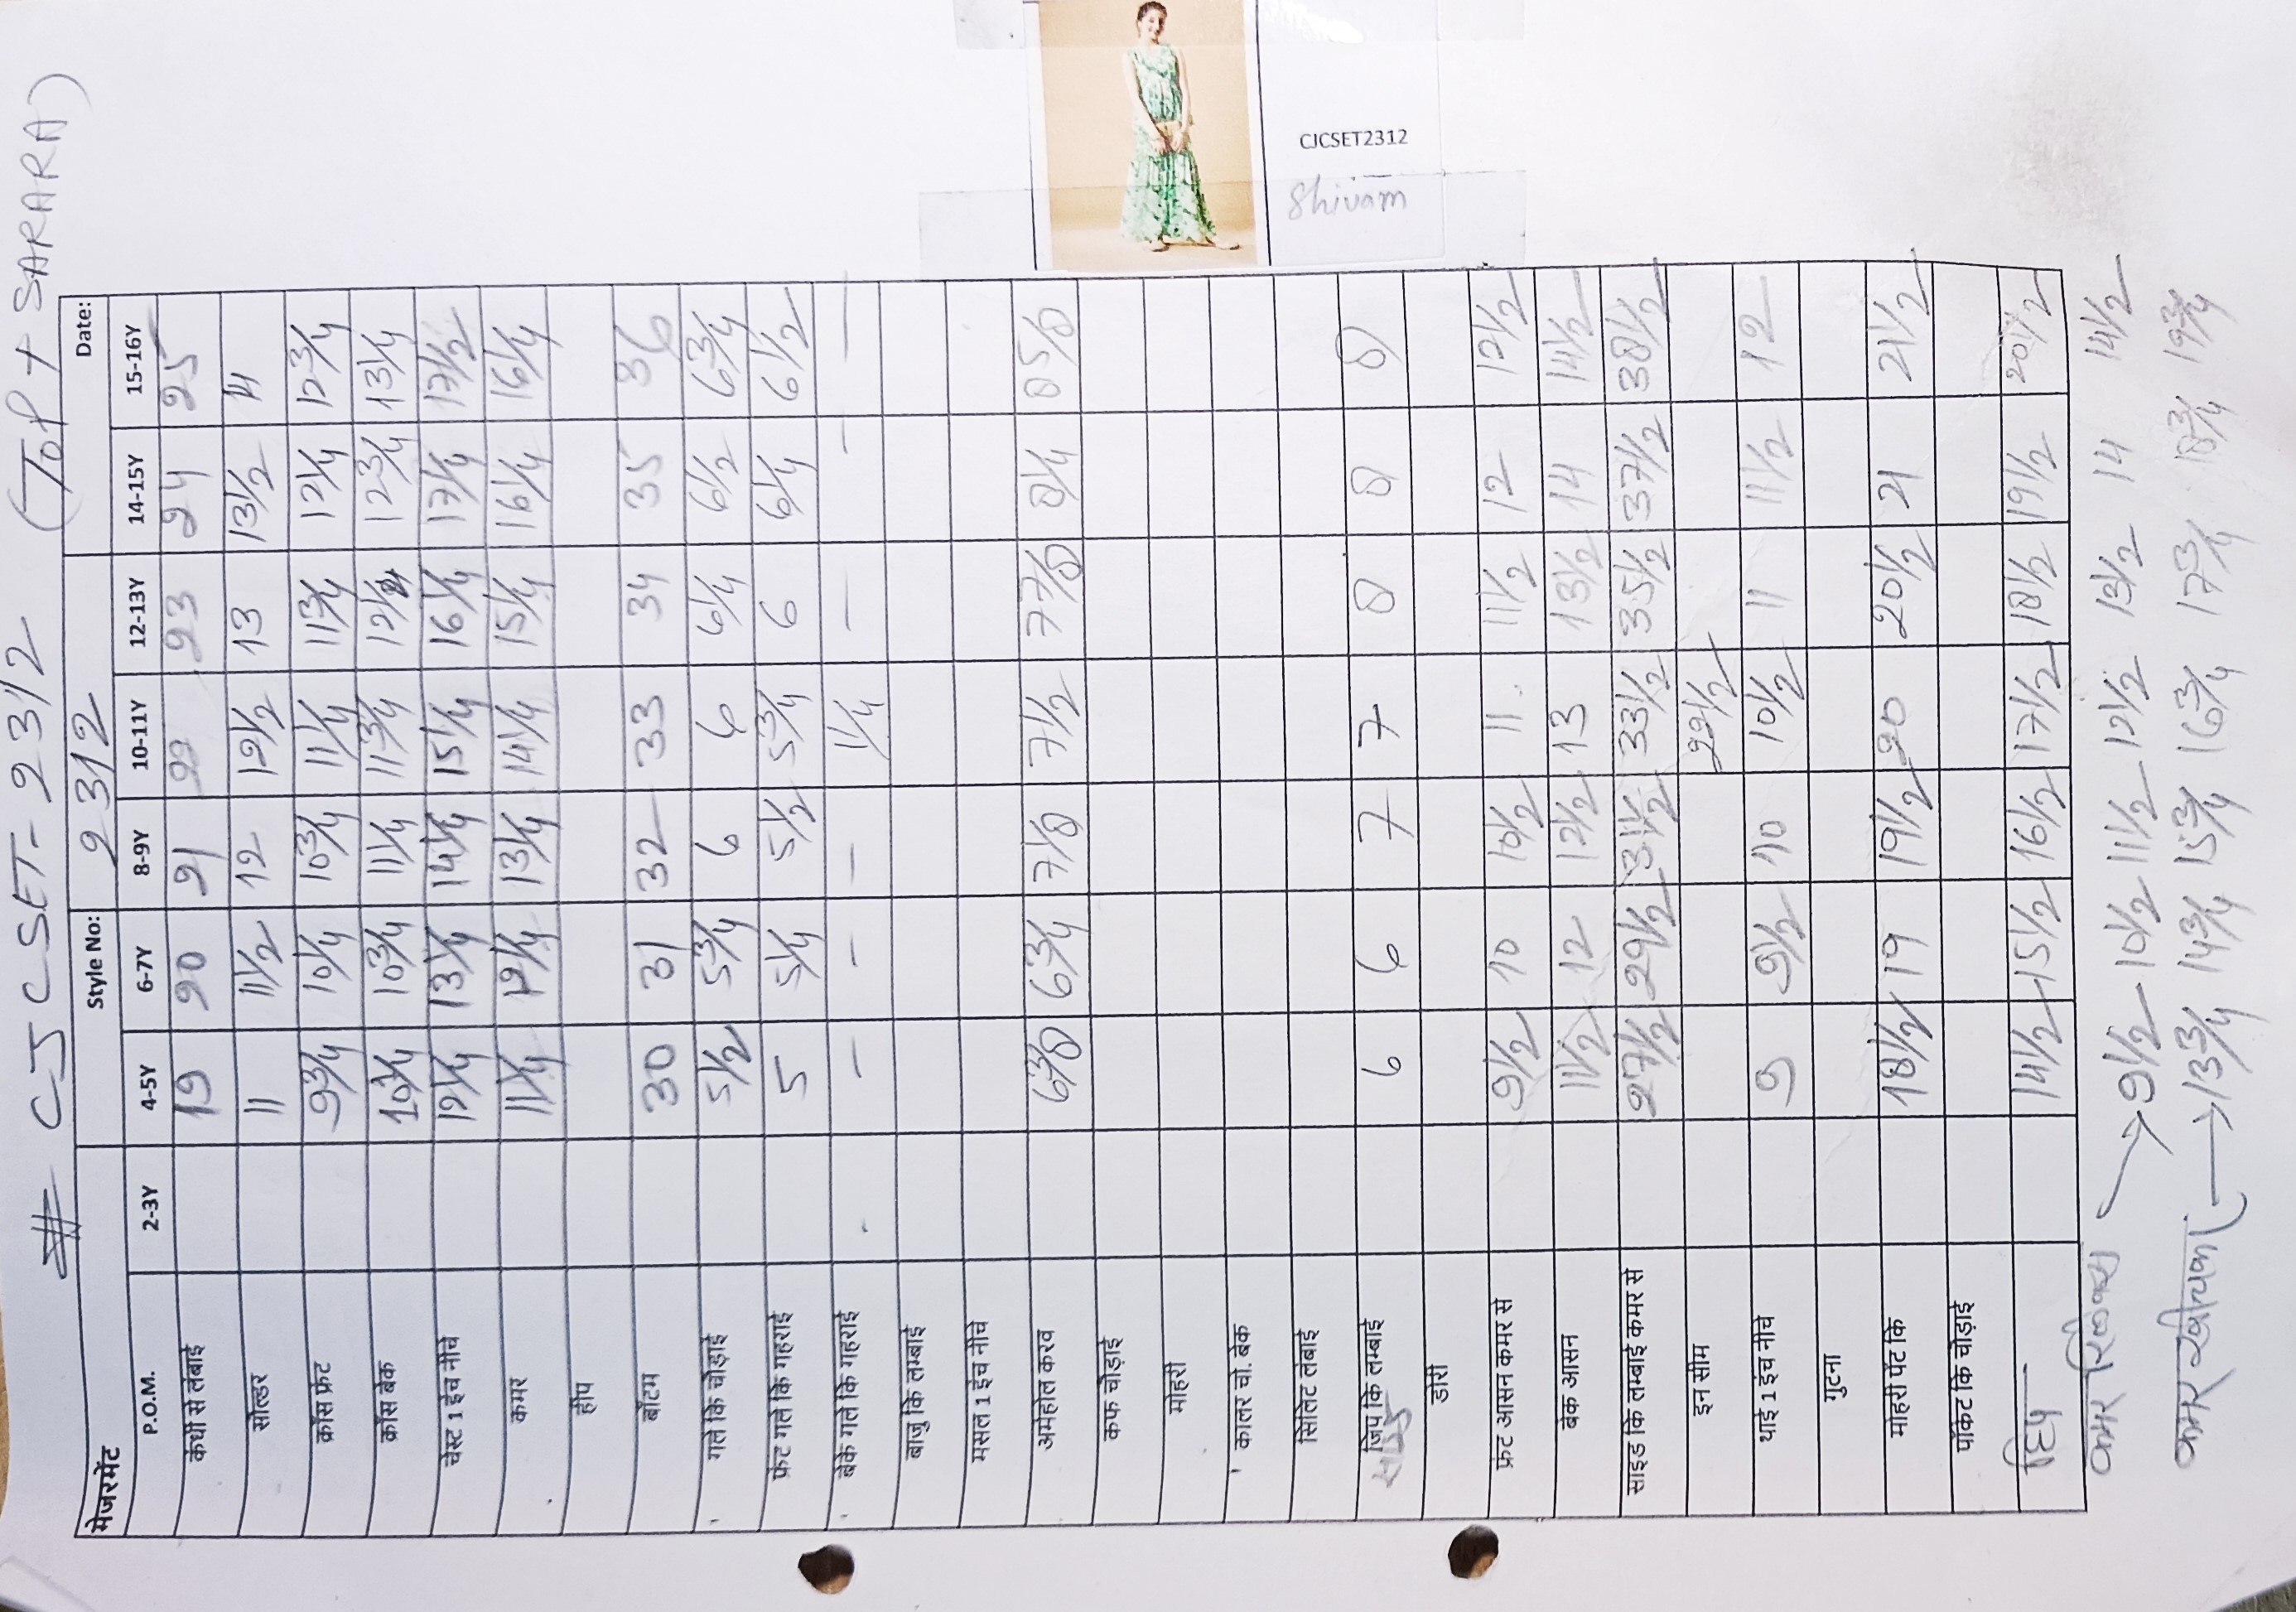 # CJCSET-2312 (TOP + SARARA)
मेजरमेंट Style No: 2312 Date:
P.O.M. 2-3Y 4-5Y 6-7Y 8-9Y 10-11Y 12-13Y 14-15Y 15-16Y
कंधी से लंबाई 19 20 21 22 23 24 25
सोल्डर 11 11½ 12 12½ 13 13½ 14
क्रॉस फ्रंट 9¾ 10¼ 10¾ 11¼ 11¾ 12¼ 12¾
क्रॉस बेक 10¼ 10¾ 11¼ 11¾ 12¼ 12¾ 13¼
चेस्ट 1 इंच नीचे 12¼ 13¼ 14¼ 15¼ 16¼ 17¼ 17½
कमर 11¼ 12¼ 13¼ 14¼ 15¼ 16¼ 16¼
हीप
बॉटम 30 31 32 33 34 35 36
गले कि चोड़ाई 5½ 5¾ 6 6 6¼ 6½ 6¾
फ्रंट गले कि गहराई 5 5¼ 5½ 5¾ 6 6¼ 6½
बेक गले कि गहराई - - - 1¼ - - -
बाजु कि लम्बाई
मसल 1 ईंच नीचे
अमेहोल करव 6⅜ 6¾ 7⅛ 7½ 7⅞ 8¼ 8⅝
कफ चोड़ाई
मोहरी
कालर चो. बेक
सिलिट लंबाई
जिप कि लम्बाई 6 6 7 7 8 8 8
साईड
डोरी
फ्रंट आसन कमर से 9½ 10 10½ 11 11½ 12 12½
बेक आसन 11½ 12 12½ 13 13½ 14 14½
साइड कि लम्बाई कमर से 27½ 29½ 31½ 33½ 35½ 37½ 38½
इन सीम 22½
थाई 1 इंच नीचे 9 9½ 10 10½ 11 11½ 12
गुटना
मोहरी पेंट कि 18½ 19 19½ 20 20½ 21 21½
पॉकेट कि चोड़ाई
हिप 14½ 15½ 16½ 17½ 18½ 19½ 20½
कमर रिलेक्स → 9½ - 10½ 11½ - 12½ 13½ 14 14½
कमर खीचकर → 13¾ 14¾ 15¾ 16¾ 17¾ 18¾ 19¾
CJCSET2312
Shivam